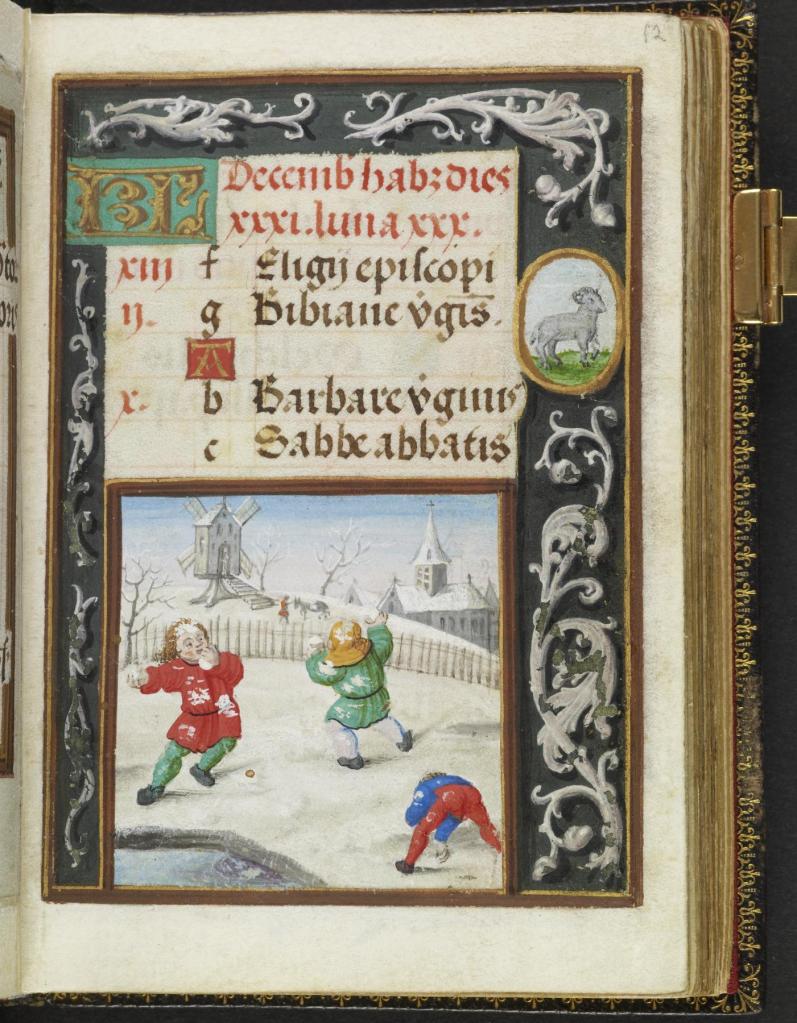 12
KL Decemb habꝫ dies
xxxi. luna xxx.
xiij f Eligij episcopi
ij. g Bibiane v̇gīs.
A
x. b Barbare v̇ginis
c Sabbe abbatis